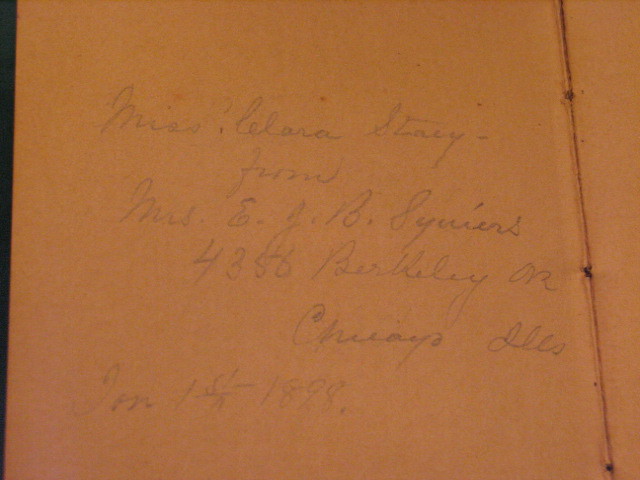 Miss. Clara Stacy -
from
Mrs. E. J. B. Squiers
4356 Berkeley
Chicago Ills
Jan 1st 1898.